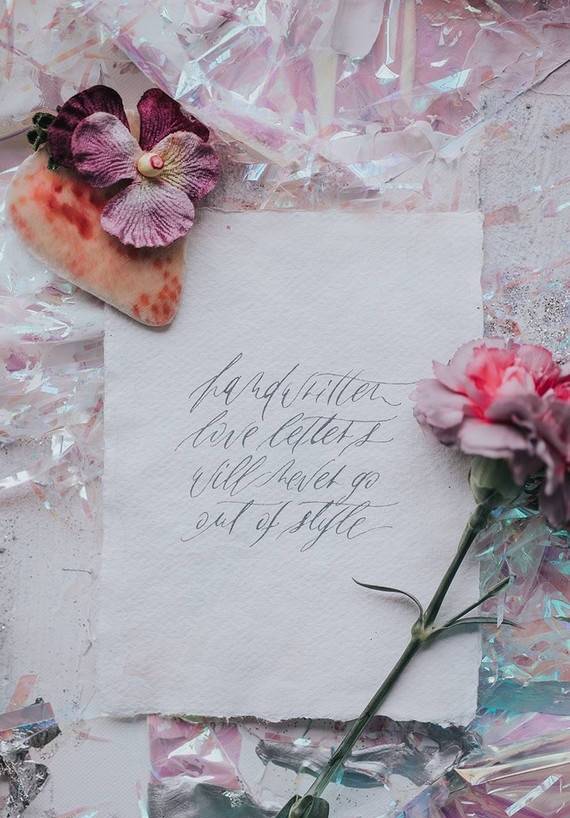 handwritten
love letters
will never go
out of style